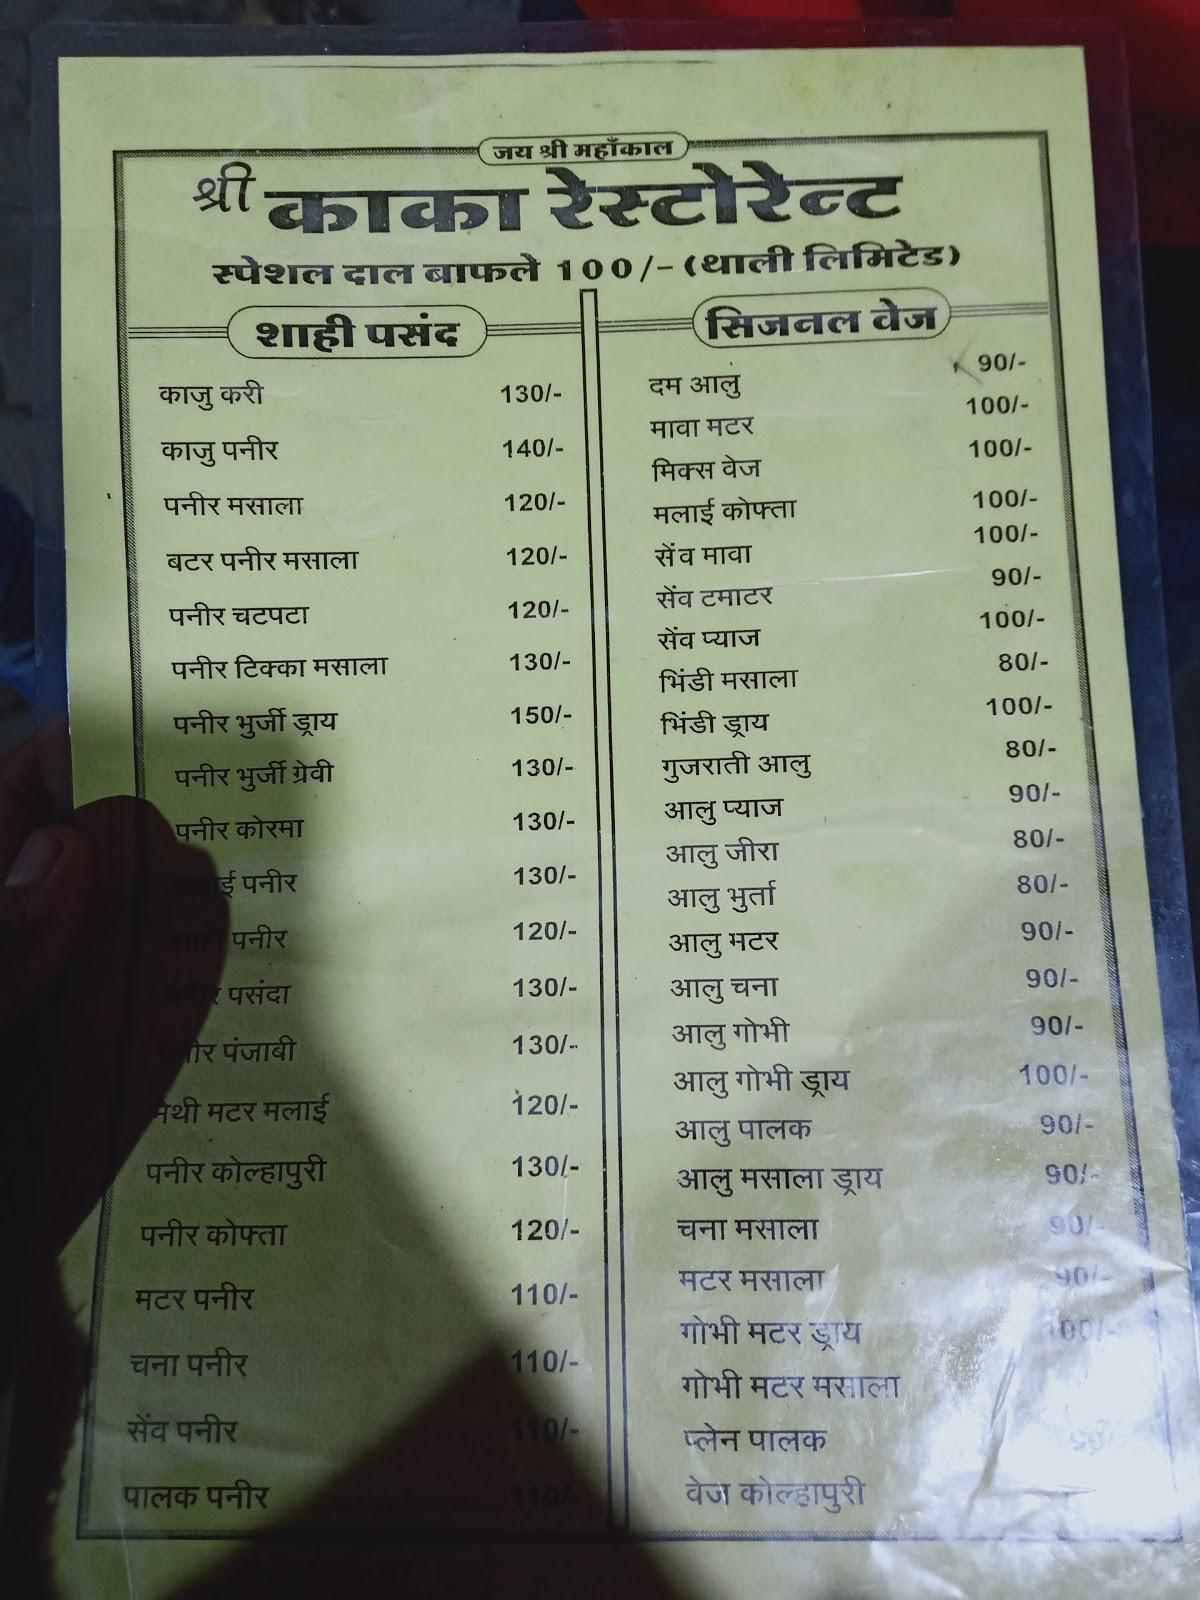 जय श्री महाँकाल
श्री काका रेस्टोरेन्ट
स्पेशल दाल बाफले 100/- (थाली लिमिटेड)
शाही पसंद
काजु करी 130/-
काजु पनीर 140/-
पनीर मसाला 120/-
बटर पनीर मसाला 120/-
पनीर चटपटा 120/-
पनीर टिक्का मसाला 130/-
पनीर भुर्जी ड्राय 150/-
पनीर भुर्जी ग्रेवी 130/-
पनीर कोरमा 130/-
पनीर 130/-
पनीर 120/-
पसंदा 130/-
पंजाबी 130/-
मेथी मटर मलाई 120/-
पनीर कोल्हापुरी 130/-
पनीर कोफ्ता 120/-
मटर पनीर 110/-
चना पनीर 110/-
सेंव पनीर 110/-
पालक पनीर 110/-
सिजनल वेज
दम आलु 90/-
मावा मटर 100/-
मिक्स वेज 100/-
मलाई कोफ्ता 100/-
सेंव मावा 100/-
सेंव टमाटर 90/-
सेंव प्याज 100/-
भिंडी मसाला 80/-
भिंडी ड्राय 100/-
गुजराती आलु 80/-
आलु प्याज 90/-
आलु जीरा 80/-
आलु भुर्ता 80/-
आलु मटर 90/-
आलु चना 90/-
आलु गोभी 90/-
आलु गोभी ड्राय 100/-
आलु पालक 90/-
आलु मसाला ड्राय 90/-
चना मसाला 90/-
मटर मसाला 90/-
गोभी मटर ड्राय 100/-
गोभी मटर मसाला
प्लेन पालक
वेज कोल्हापुरी